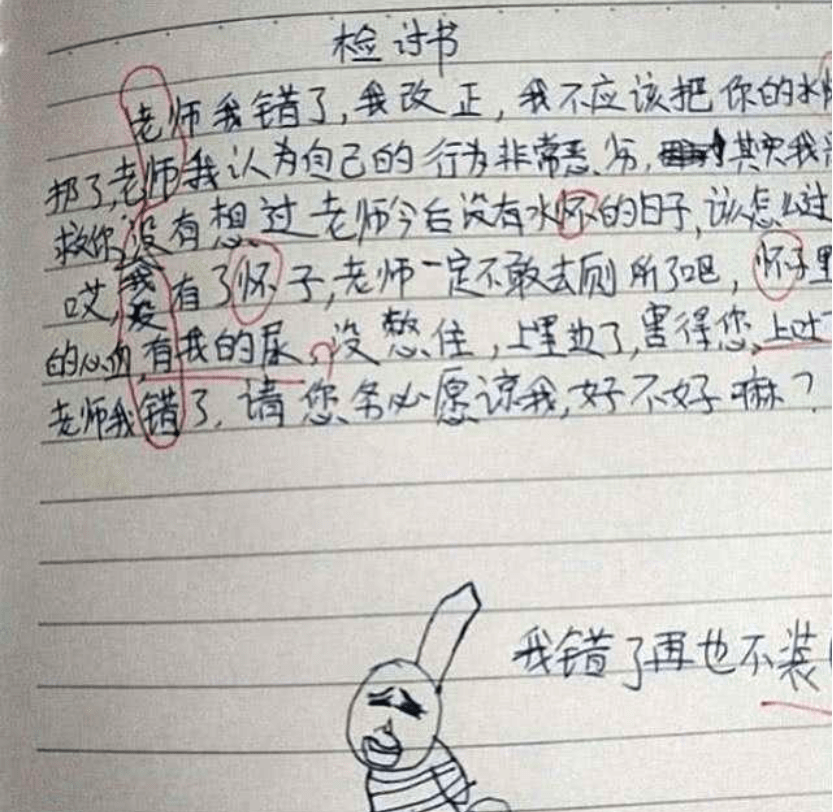 检讨书
老师我错了,我改正,我不应该把你的水
扔了,老师我认为自己的行为非常恶劣,其实我
救你,没有想过老师今后没有水怀的日子,该怎么过
哎,我没有了怀子,老师一定不敢去厕所了吧,怀子里
的心血,有我的尿。没憋住,上里边了,害得您上吐
老师我错了,请您务必愿谅我,好不好嘛?
我错了再也不装